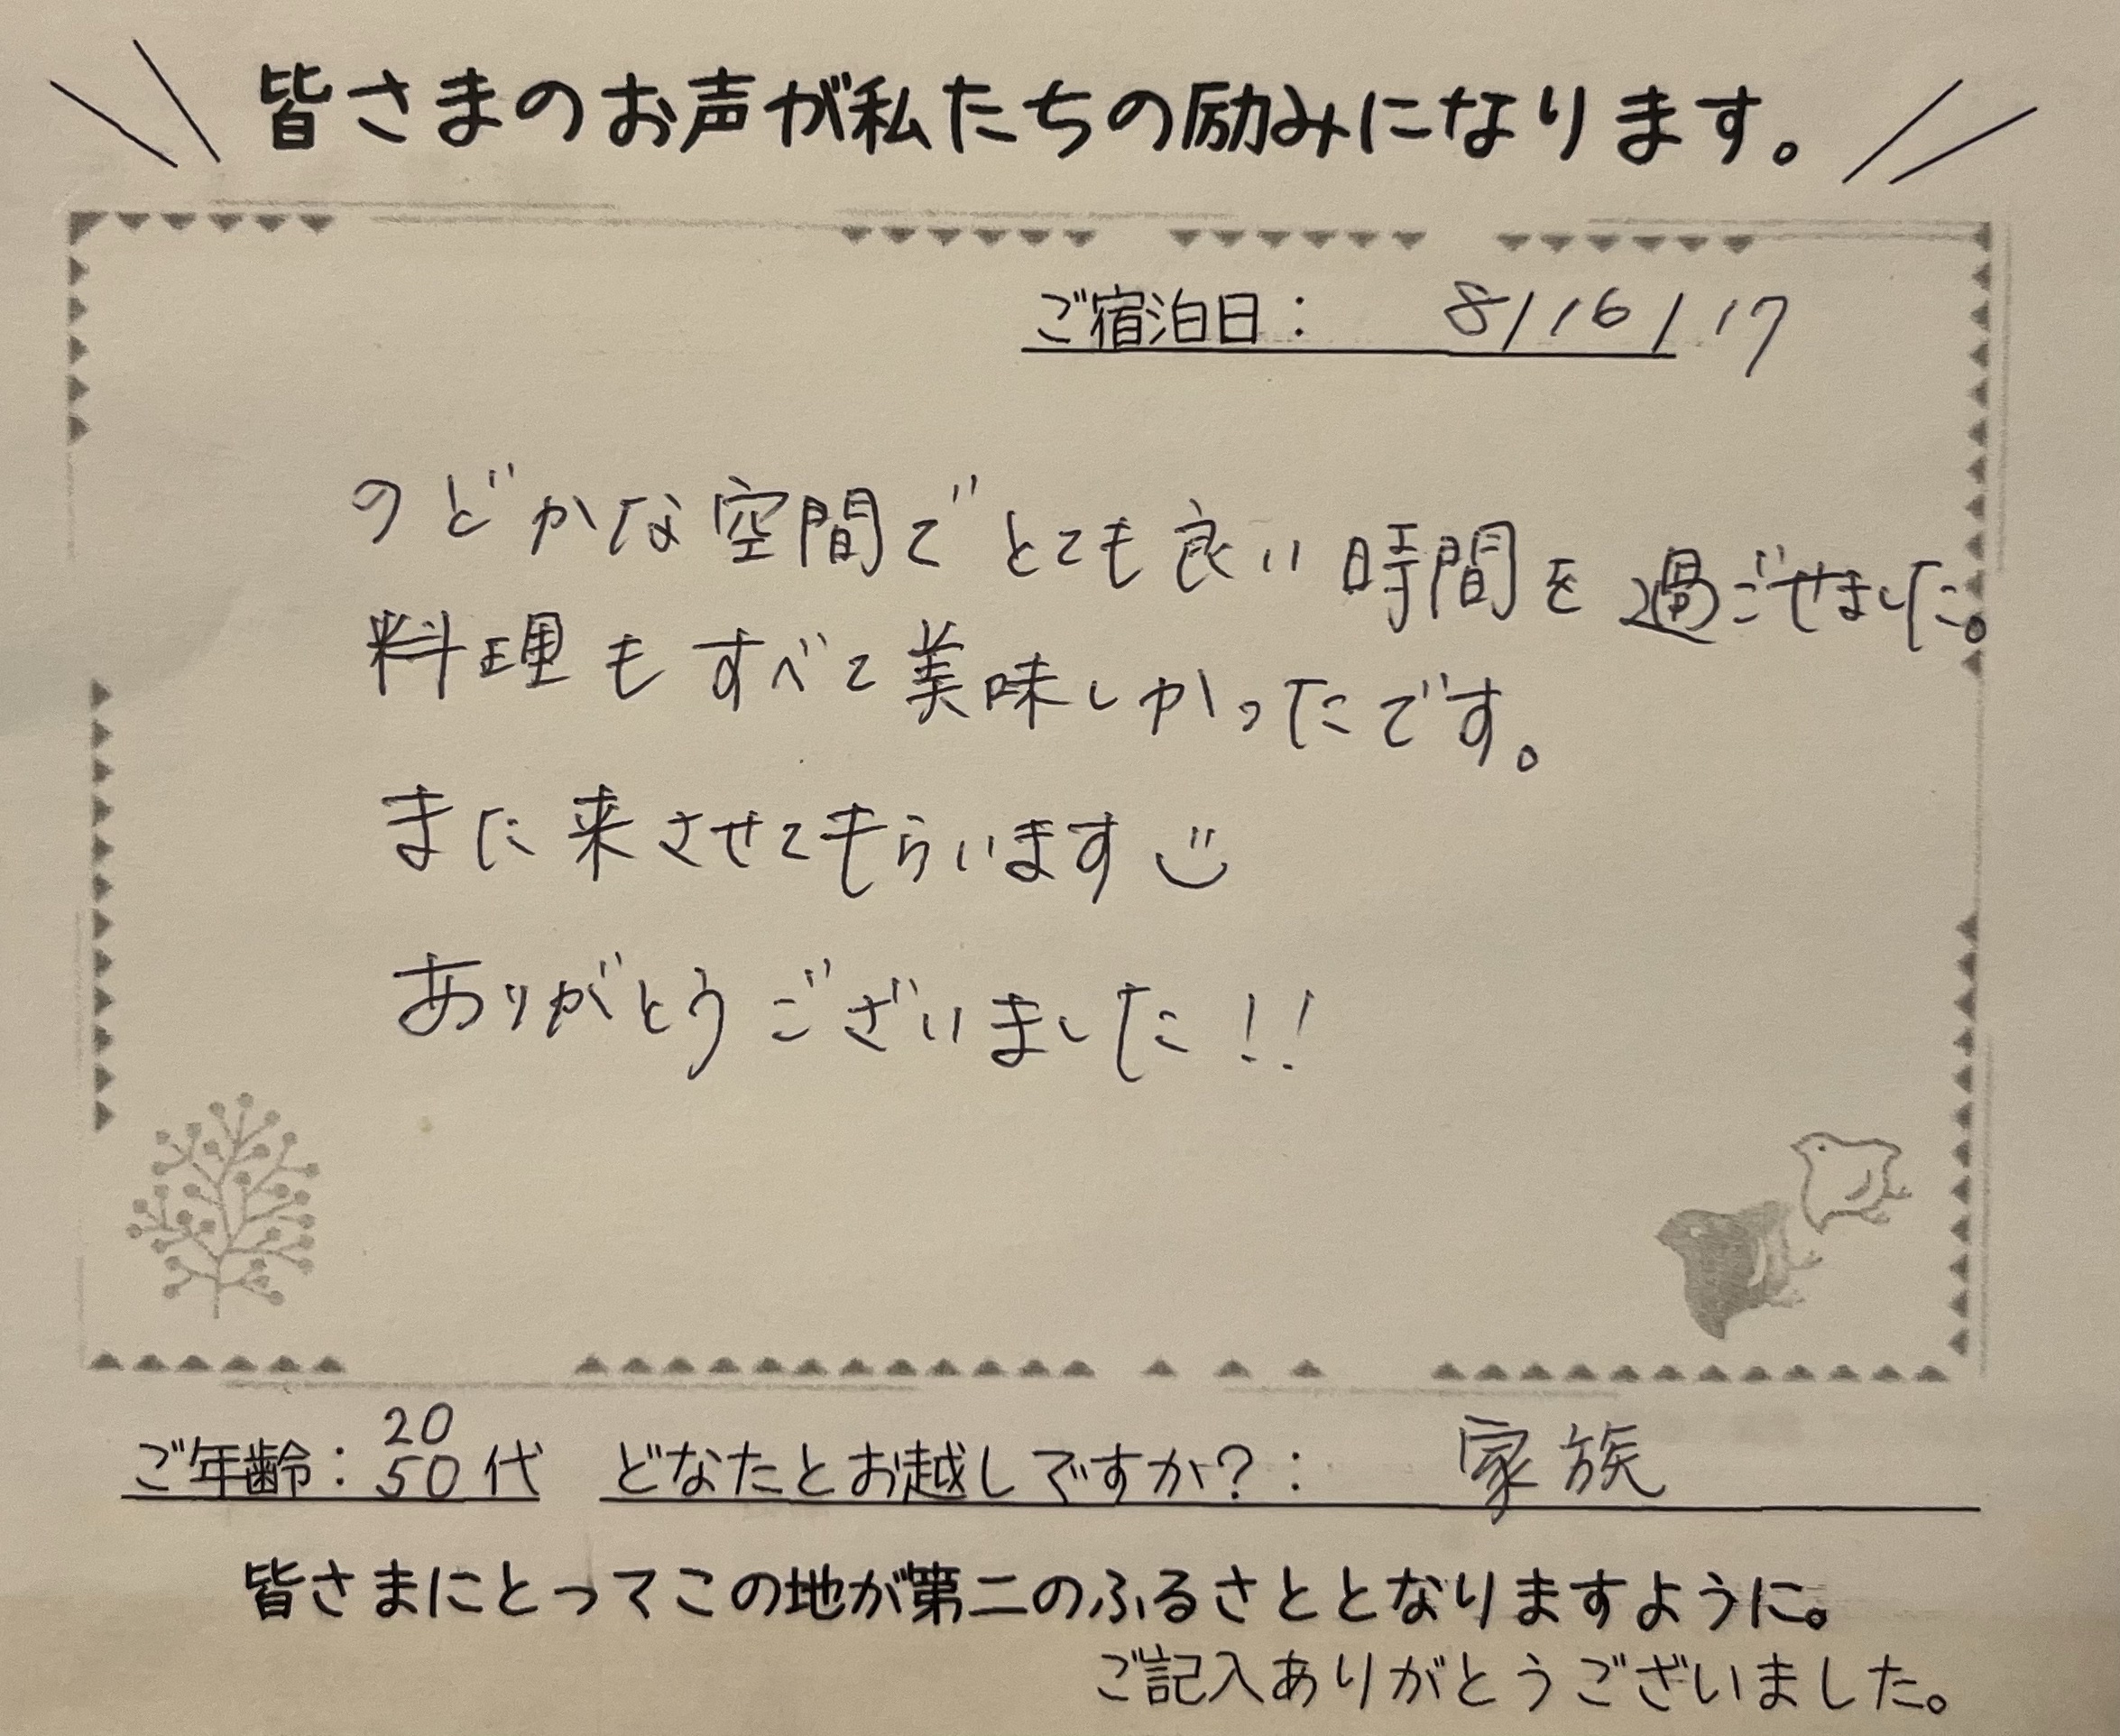 皆さまのお声が私たちの励みになります。
ご宿泊日: 8/16/17
のどかな空間でとても良い時間を過ごせました。
料理もすべて美味しかったです。
また来させてもらいます
ありがとうございました!!
20
ご年齢:50代 どなたとお越しですか?: 家族
皆さまにとってこの地が第二のふるさととなりますように。
ご記入ありがとうございました。